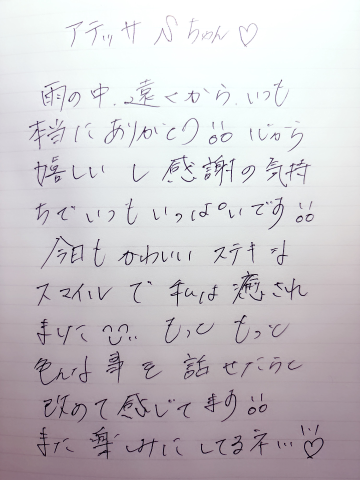 アテッサ Sちゃん♡
雨の中、遠くから、いつも
本当にありがとう!! 心から
嬉しいし 感謝の気持
ちでいつもいっぱいです!!
今日もかわいいステキな
スマイルで 私は癒され
ました もっと もっと
色んな事を話せたらと
改めて感じてます!!
また楽しみにしてるネ…♡